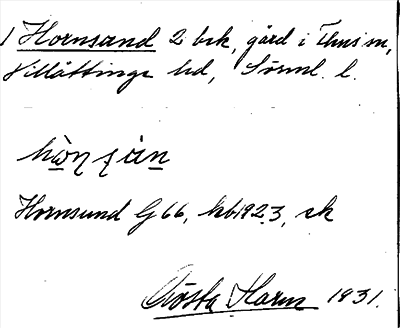 1 Hornsund 2 bsk, gård i Flens sn,
Villåttinge hd, Sörml. l.
Hornsund G 66, kb 1923, ck
Gösta Harm 1931.